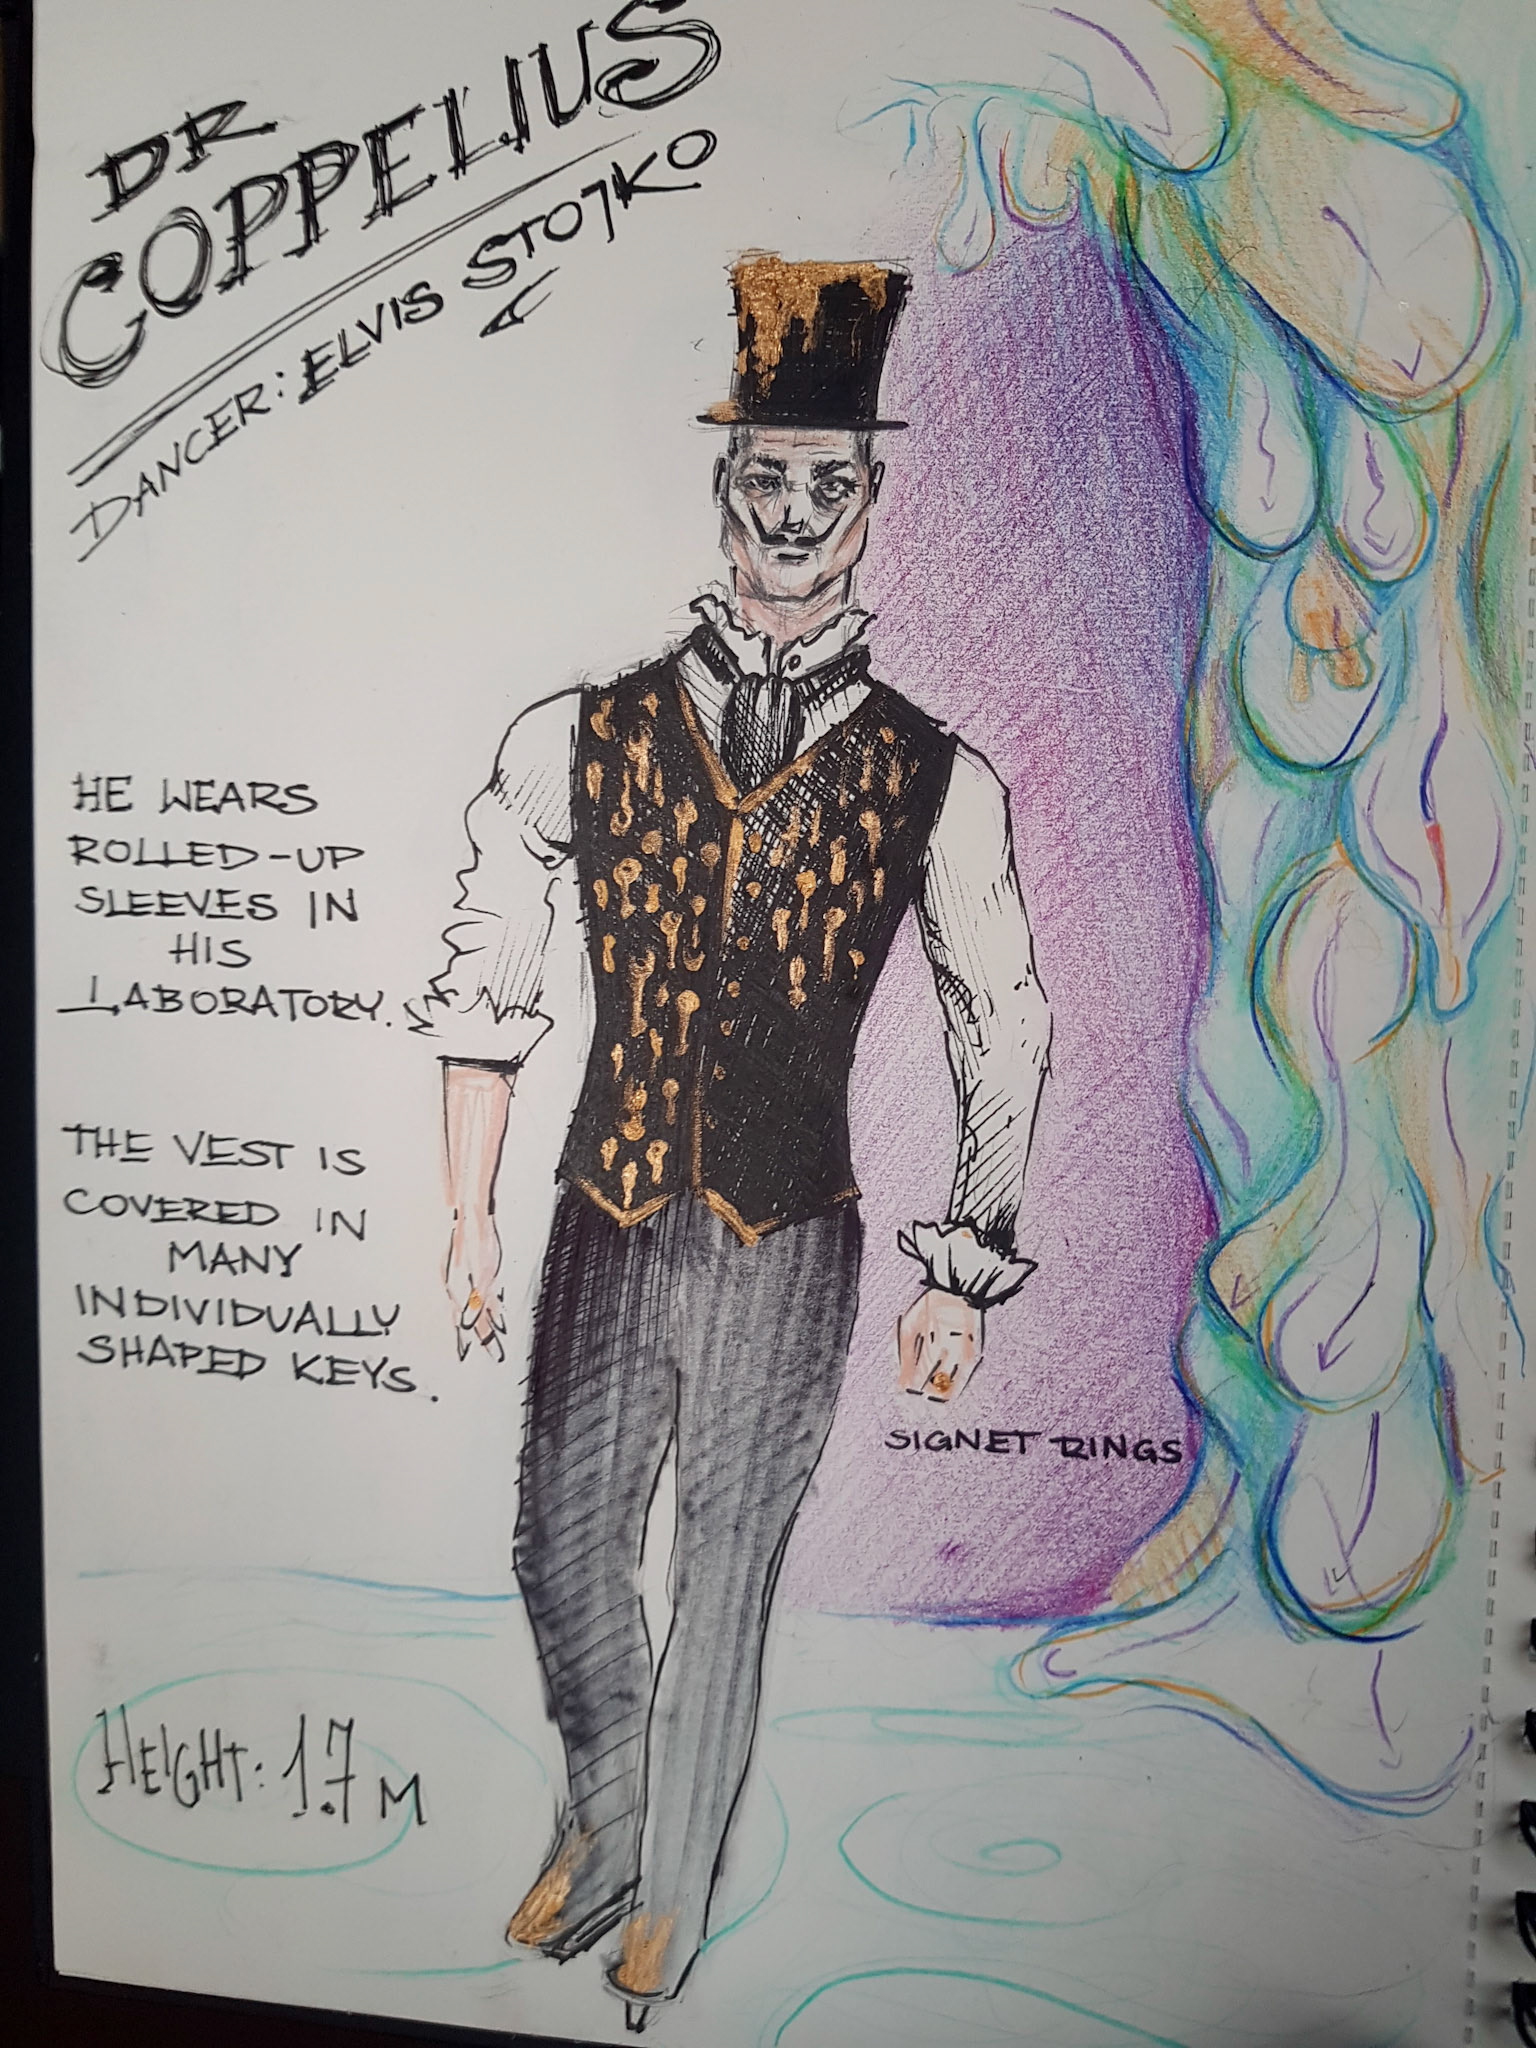 DR
COPPELIUS
DANCER: ELVIS STOJKO
HE WEARS
ROLLED-UP
SLEEVES IN
HIS
LABORATORY.
THE VEST IS
COVERED IN
MANY
INDIVIDUALLY
SHAPED KEYS.
SIGNET RINGS
HEIGHT: 1.7 M